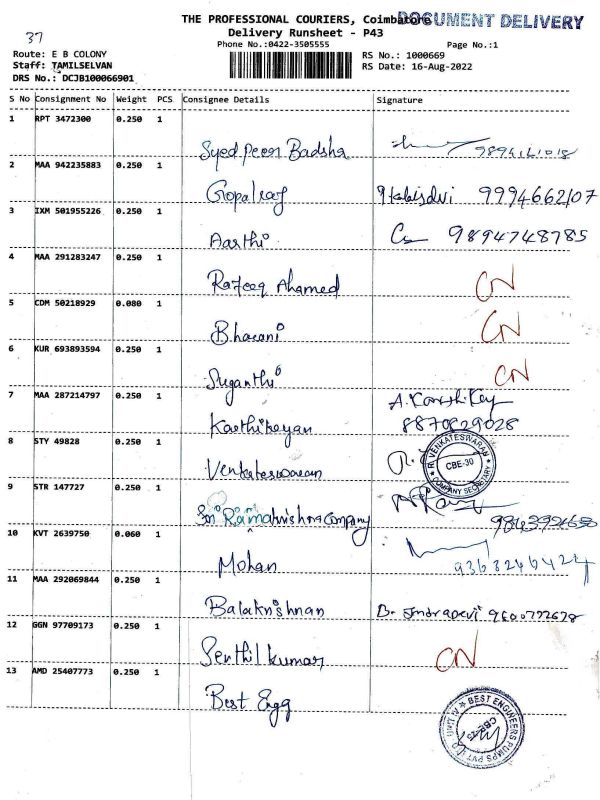 THE PROFESSIONAL COURIERS, Coimbatore
DOCUMENT DELIVERY
Delivery Runsheet - P43
37
Phone No.:0422-3505555 Page No.:1
Route: E B COLONY RS No.: 1000669
Staff: TAMILSELVAN RS Date: 16-Aug-2022
DRS No.: DCJB100066901
S No Consignment No Weight PCS Consignee Details Signature
1 RPT 3472300 0.250 1
Syed peer Badsha
2 MAA 942235883 0.250 1
Gopalraj 9994662107
3 IXM 501955226 0.250 1
Aarthi 9894748785
4 MAA 291283247 0.250 1
Rafeeq Ahamed CN
5 CDM 50218929 0.080 1
Bharani CN
6 KUR 693893594 0.250 1
Suganthi CN
7 MAA 287214797 0.250 1 A. Karthikey
Karthikeyan 8870829028
8 STY 49828 0.250 1
Venkateswaran
R. VENKATESWARAN
CBE-30
COMPANY SECRETARY
9 STR 147727 0.250 1
Sri Ramakrishna company
10 KVT 2639750 0.060 1
Mohan
11 MAA 292069844 0.250 1
Balakrishnan B. Indradevi 9600772678
12 GGN 97709173 0.250 1
Senthil kumar CN
13 AMD 25407773 0.250 1
Best Engg
BEST ENGINEERS PUMPS PVT LTD